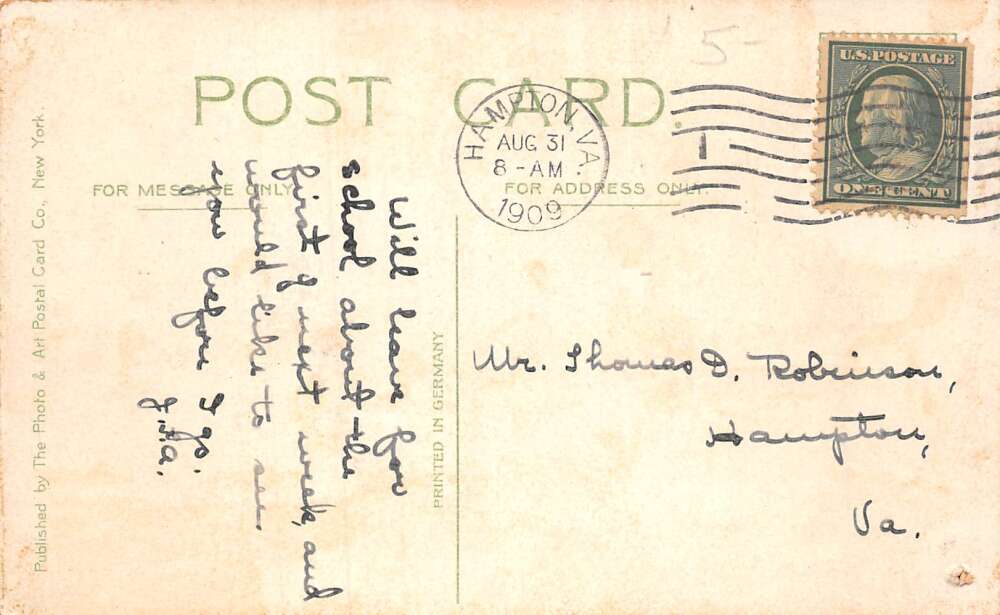 5-
POST CARD.
U.S. POSTAGE
ONE CENT
HAMPTON, VA.
AUG 31
8 - AM
1909
1
FOR MESSAGE ONLY
FOR ADDRESS ONLY.
Will leave for
school about the
first of next week, and
would like to see
you before I go.
Mr. Thomas D. Robinson,
Hampton,
Va.
PRINTED IN GERMANY
Published by The Photo & Art Postal Card Co., New York.